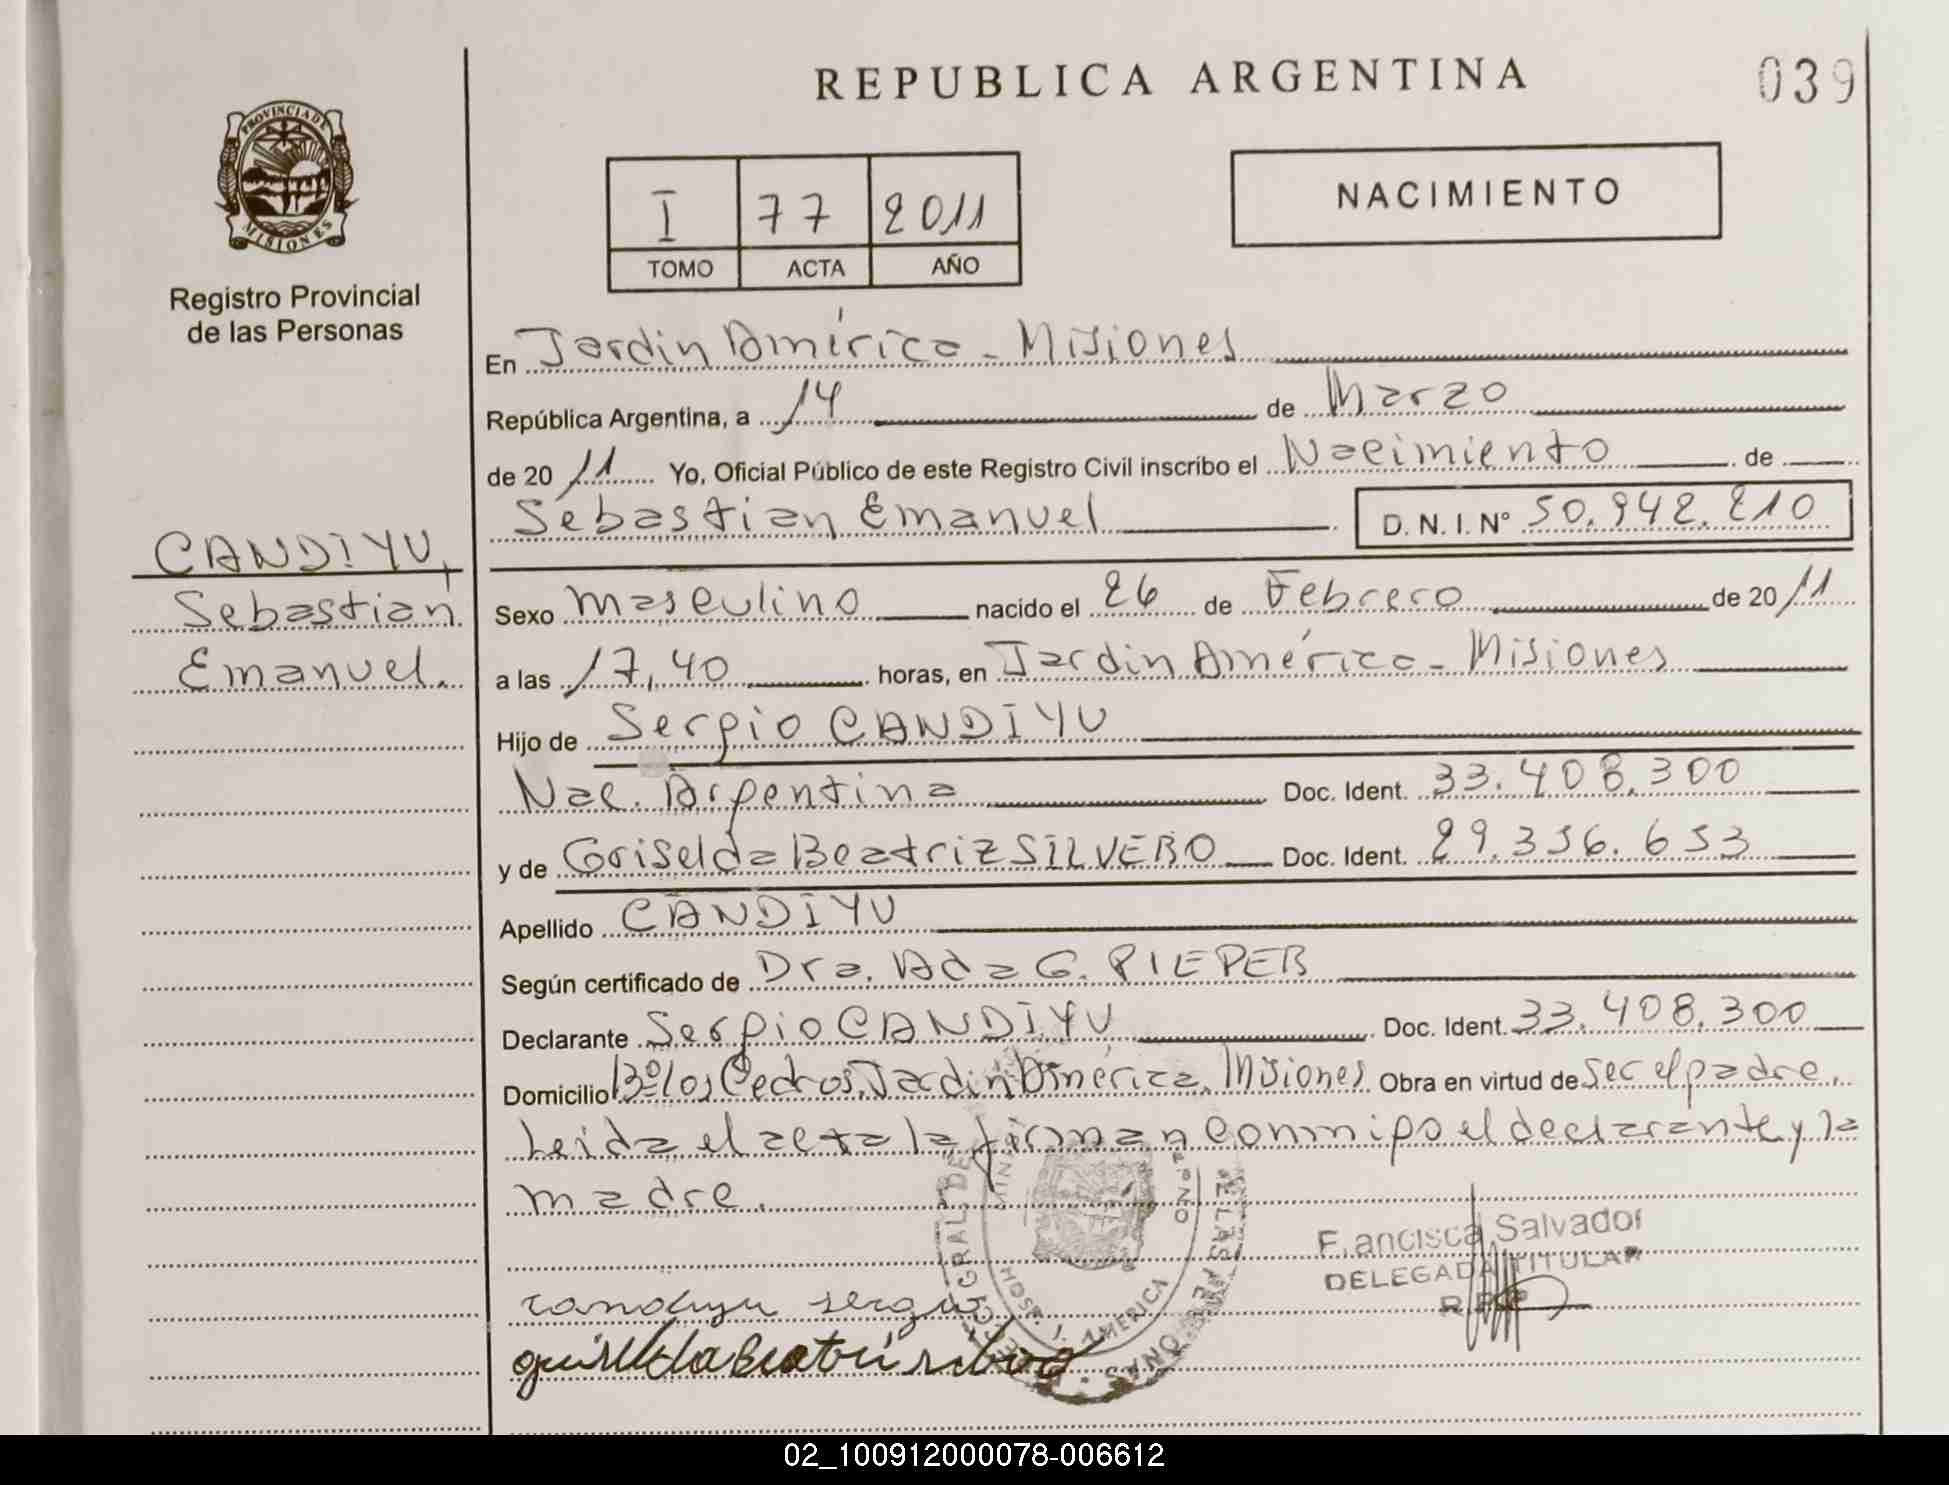 REPUBLICA ARGENTINA
039
PROVINCIA DE
MISIONES
Registro Provincial
de las Personas
I 77 2011
TOMO ACTA AÑO
NACIMIENTO
En Jardin América - Misiones
República Argentina, a 14 de Marzo
de 2011 Yo, Oficial Público de este Registro Civil inscribo el Nacimiento de
Sebastian Emanuel D. N. I. Nº 50.942.210
CANDIYU,
Sebastian
Emanuel.
Sexo masculino nacido el 26 de Febrero de 2011
a las 17,40 horas, en Jardin América - Misiones
Hijo de Sergio CANDIYU
Nac. Argentina Doc. Ident. 33.408.300
y de Griselda Beatriz SILVERO Doc. Ident. 29.336.653
Apellido CANDIYU
Según certificado de Dra. Ada G. PIEPER
Declarante Sergio CANDIYU Doc. Ident. 33.408.300
Domicilio Bº Los Cedros, Jardin América, Misiones Obra en virtud de ser el padre.
Leida el acta la firman conmigo el declarante y la
madre.
Francisca Salvador
DELEGADA TITULAR
R.P.P
candiyu sergio
02_100912000078-006612